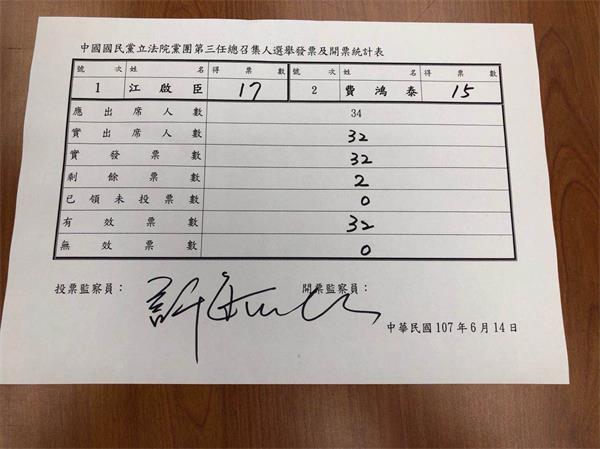 中國國民黨立法院黨團第三任總召集人選舉發票及開票統計表
號次 姓名 得票數 號次 姓名 得票數
1 江啟臣 17 2 費鴻泰 15
應出席人數 34
實出席人數 32
實發票數 32
剩餘票數 2
已領未投票數 0
有效票數 32
無效票數 0
投票監察員： 開票監察員：
中華民國 107 年 6 月 14 日